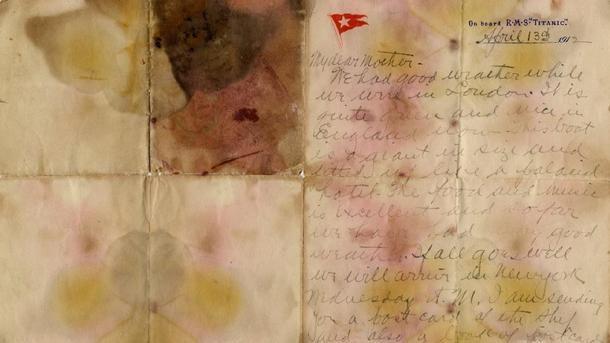 On board R.M.S. "TITANIC".
April 13th 1912
My dear Mother.
We had good weather while
we were in London. It is
quite green and nice in
England now. This boat
is a giant in size and
fitted up like a palacial
hotel. The food and music
is excellent and so far
we have had very good
weather. If all goes well
we will arrive in New york
Wednesday A.M. I am sending
you a post card of the ship
and also a book of post card